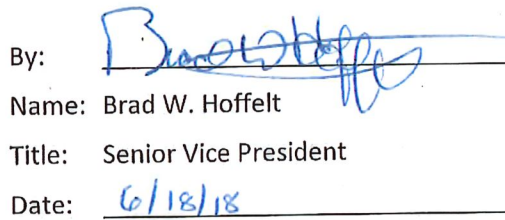 By: Brad W Hoffelt
Name: Brad W. Hoffelt
Title: Senior Vice President
Date: 6/18/18